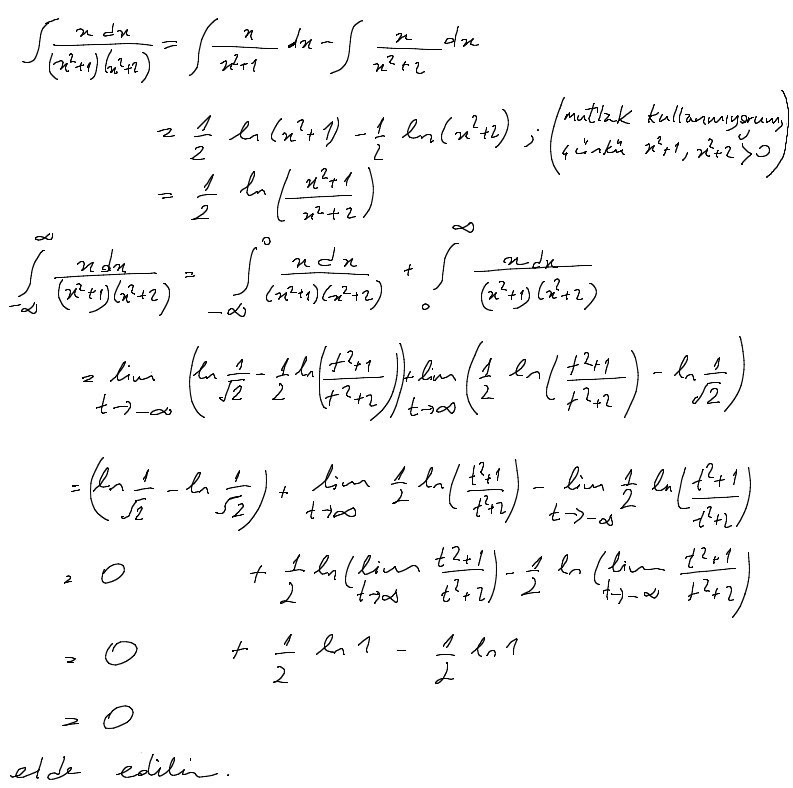 ∫ x dx / ((x²+1)(x²+2)) = ∫ x/(x²+1) dx − ∫ x/(x²+2) dx
= 1/2 ln(x²+1) − 1/2 ln(x²+2) ; (mutlak kullanmıyorum, çünkü x²+1, x²+2 > 0)
= 1/2 ln((x²+1)/(x²+2))
∫_{−∞}^{∞} x dx / ((x²+1)(x²+2)) = ∫_{−∞}^{0} x dx / ((x²+1)(x²+2)) + ∫_{0}^{∞} x dx / ((x²+1)(x²+2))
= lim_{t→−∞} (ln 1/√2 − 1/2 ln((t²+1)/(t²+2))) + lim_{t→∞} (1/2 ln((t²+1)/(t²+2)) − ln 1/√2)
= (ln 1/√2 − ln 1/√2) + lim_{t→∞} 1/2 ln((t²+1)/(t²+2)) − lim_{t→−∞} 1/2 ln((t²+1)/(t²+2))
= 0 + 1/2 ln(lim_{t→∞} (t²+1)/(t²+2)) − 1/2 ln(lim_{t→−∞} (t²+1)/(t²+2))
= 0 + 1/2 ln 1 − 1/2 ln 1
= 0
elde edilir.